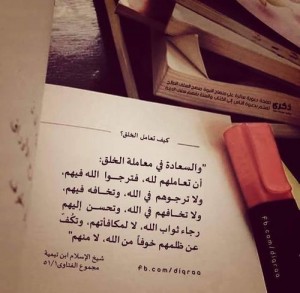 ذكرى
كيف تعامل الخلق؟
"والسعادة في معاملة الخلق:
أن تعاملهم لله، فترجوا الله فيهم،
ولا ترجوهم في الله، وتخافه فيهم،
ولا تخافهم في الله، وتحسن إليهم
رجاء ثواب الله، لا لمكافأتهم، وتكف
عن ظلمهم خوفاً من الله، لا منهم"
شيخ الإسلام ابن تيمية
مجموع الفتاوى ٥١/١
fb.com/diqraa
fb.com/diqraa